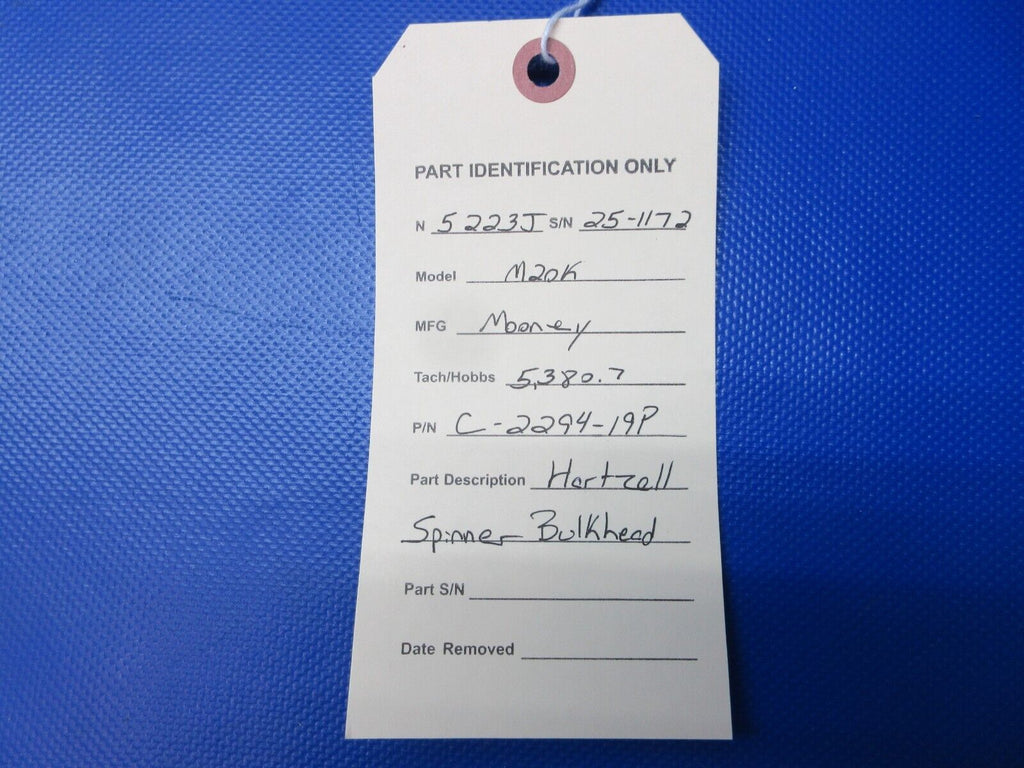 PART IDENTIFICATION ONLY
N 5223J S/N 25-1172
Model M20K
MFG Mooney
Tach/Hobbs 5,380.7
P/N C-2294-19P
Part Description Hartzell
Spinner Bulkhead
Part S/N
Date Removed